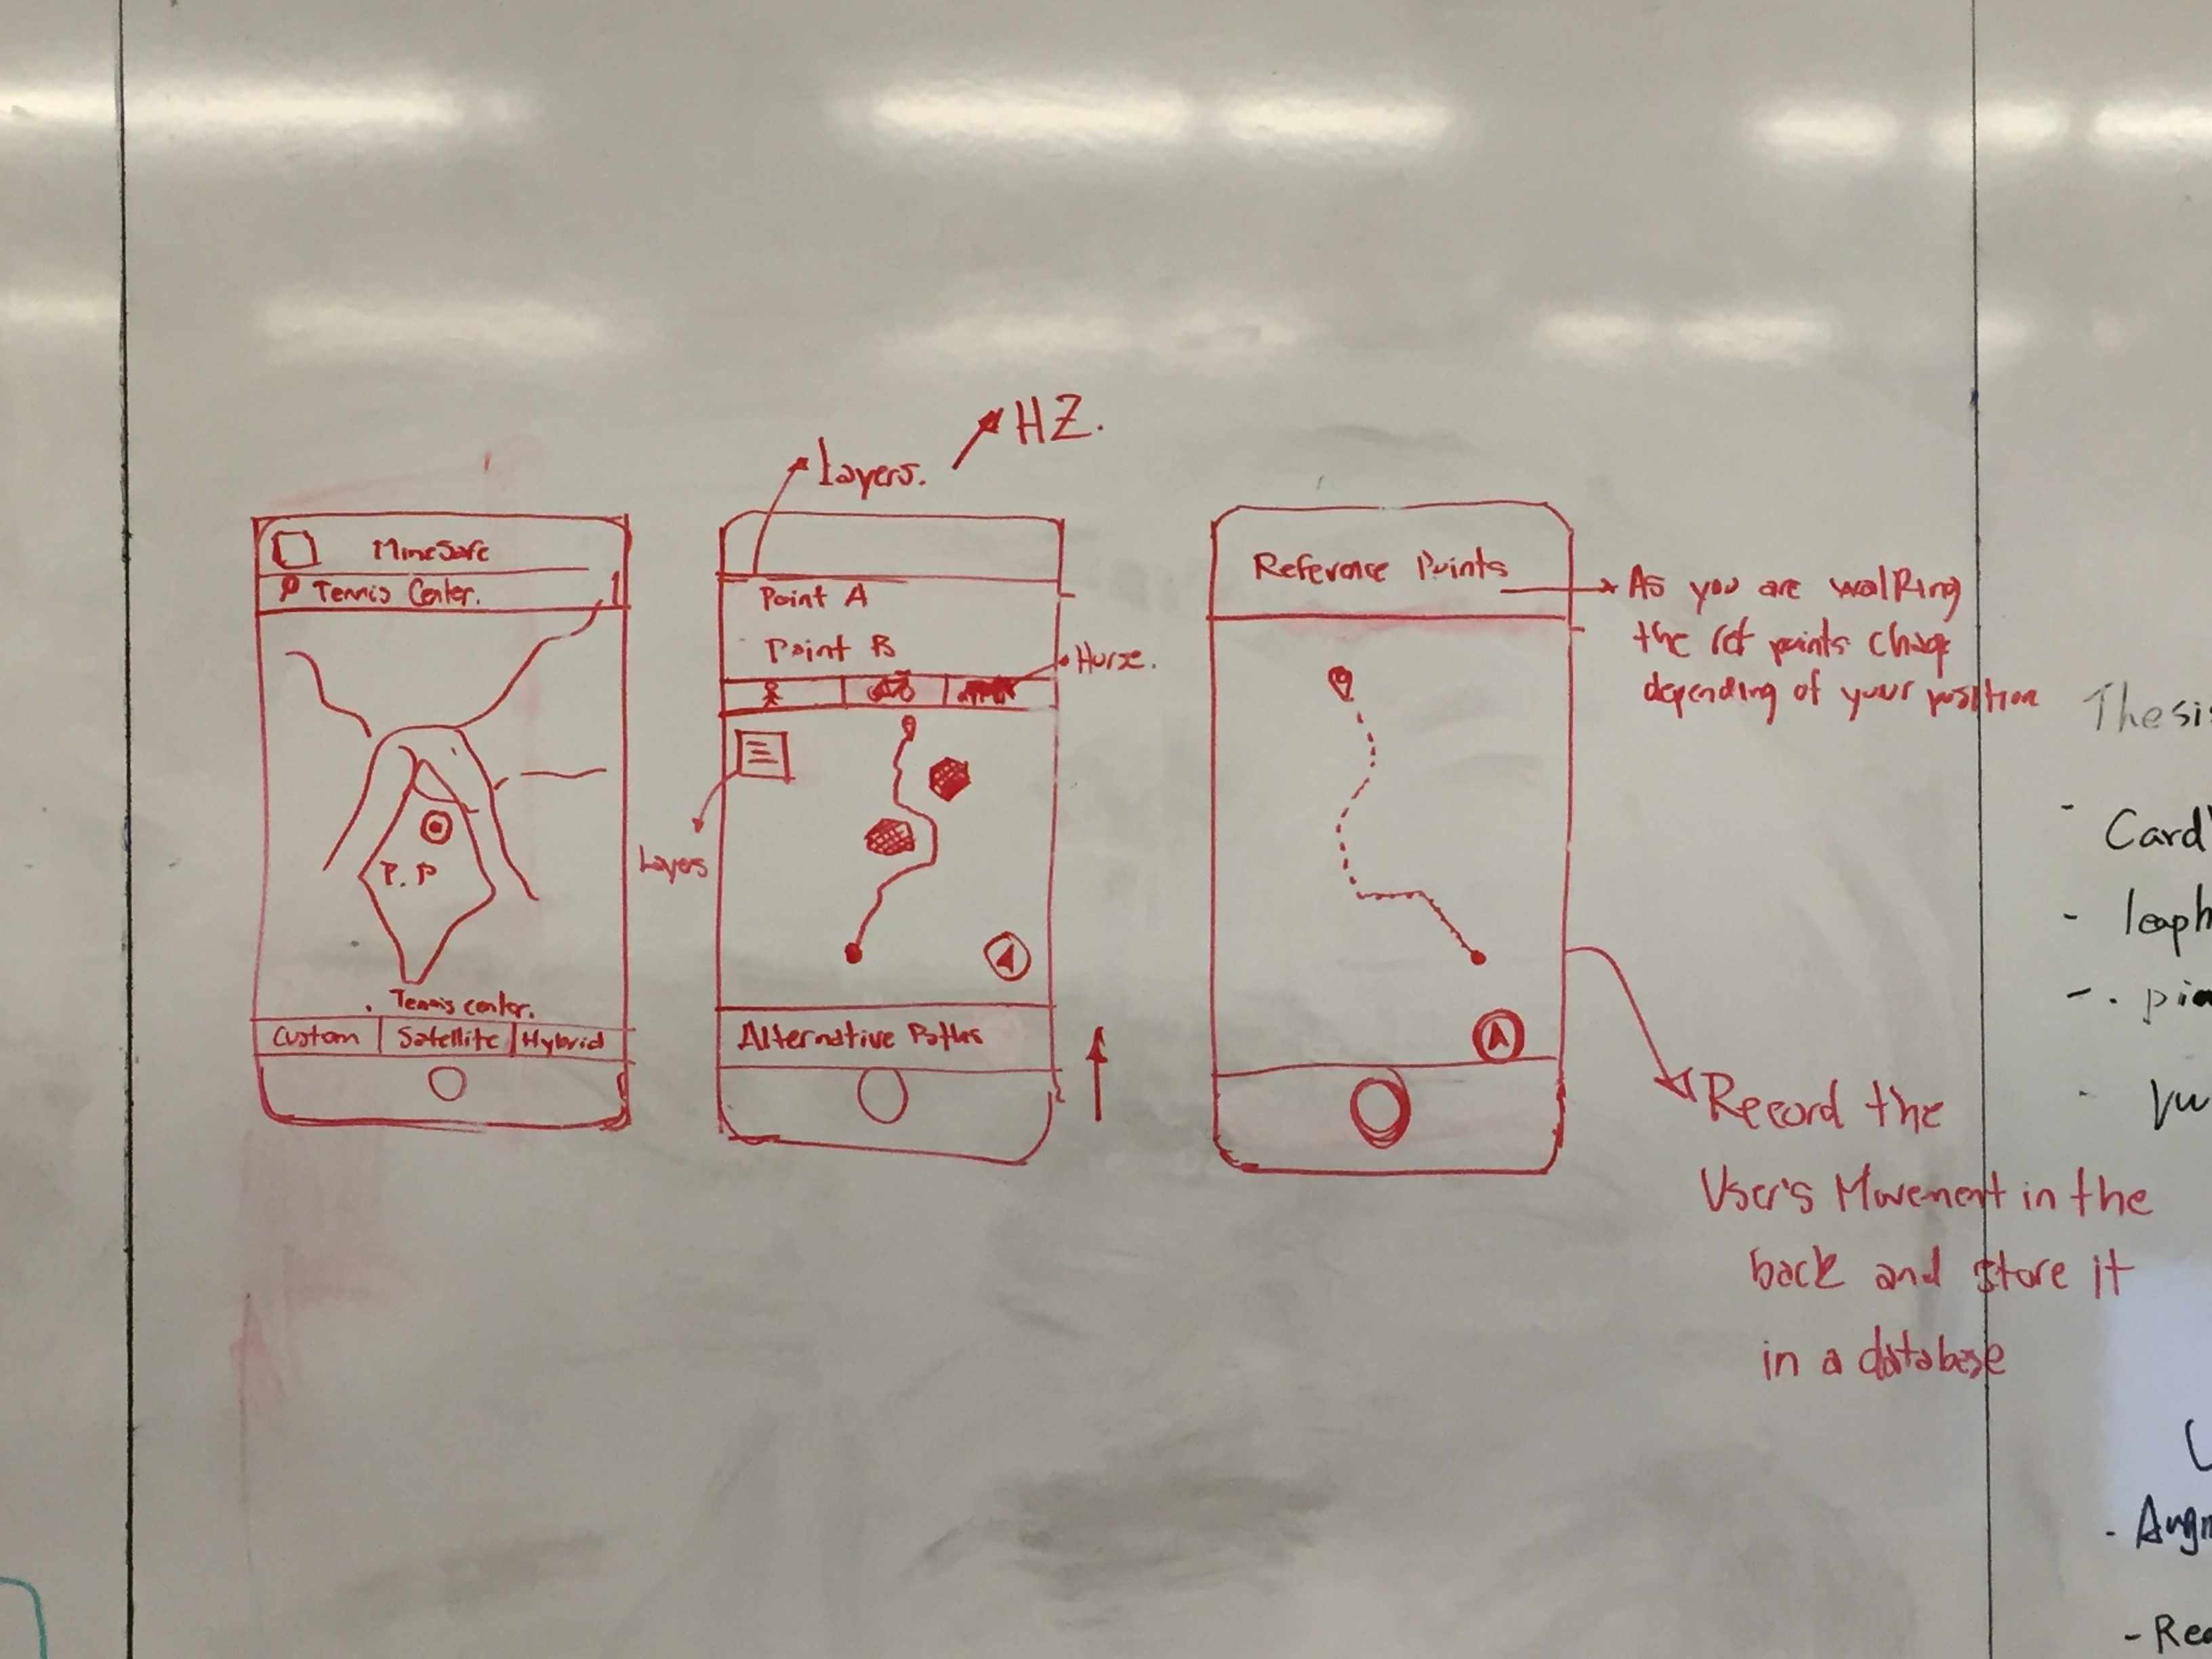 HZ.
Layers.
MineSafe
Tennis Center.
P.P
Tennis center.
Custom
Satellite
Hybrid
Point A
Point B
Horse.
Layers
Alternative Paths
Reference Points
As you are walking
the ref points chage
depending of your position
Record the
User's Movement in the
back and store it
in a database
Thesis
- Card
- leaph
-
- Augm
- Rea